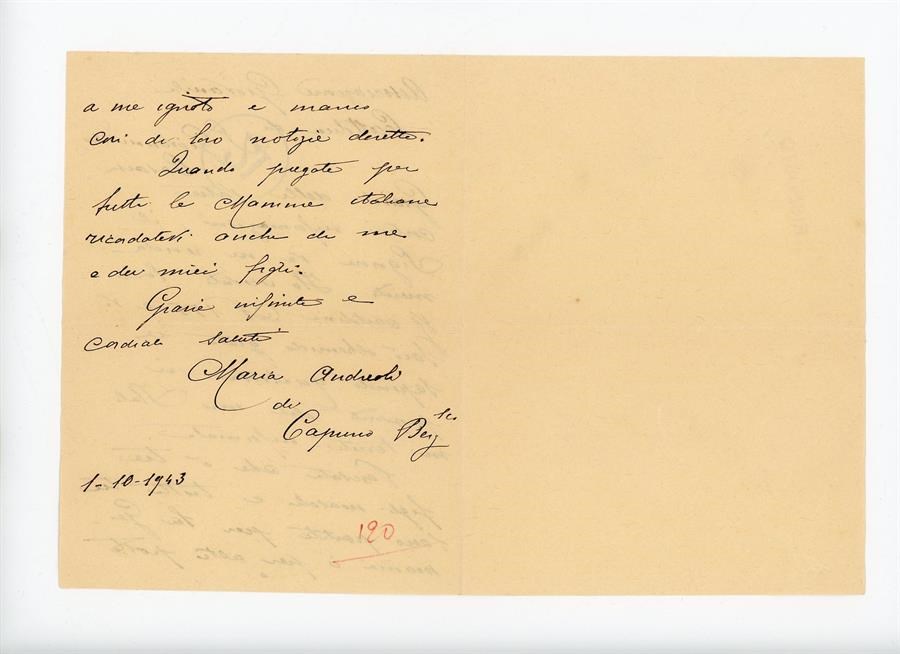 a me ignoto e manco
così di loro notizie dirette.
Quando pregate per
tutte le Mamme italiane
ricordatevi anche di me
e dei miei figli.
Grazie infinite e
cordiali saluti
Maria Andreoli
di
Capuno Berg.sco
1-10-1943
120